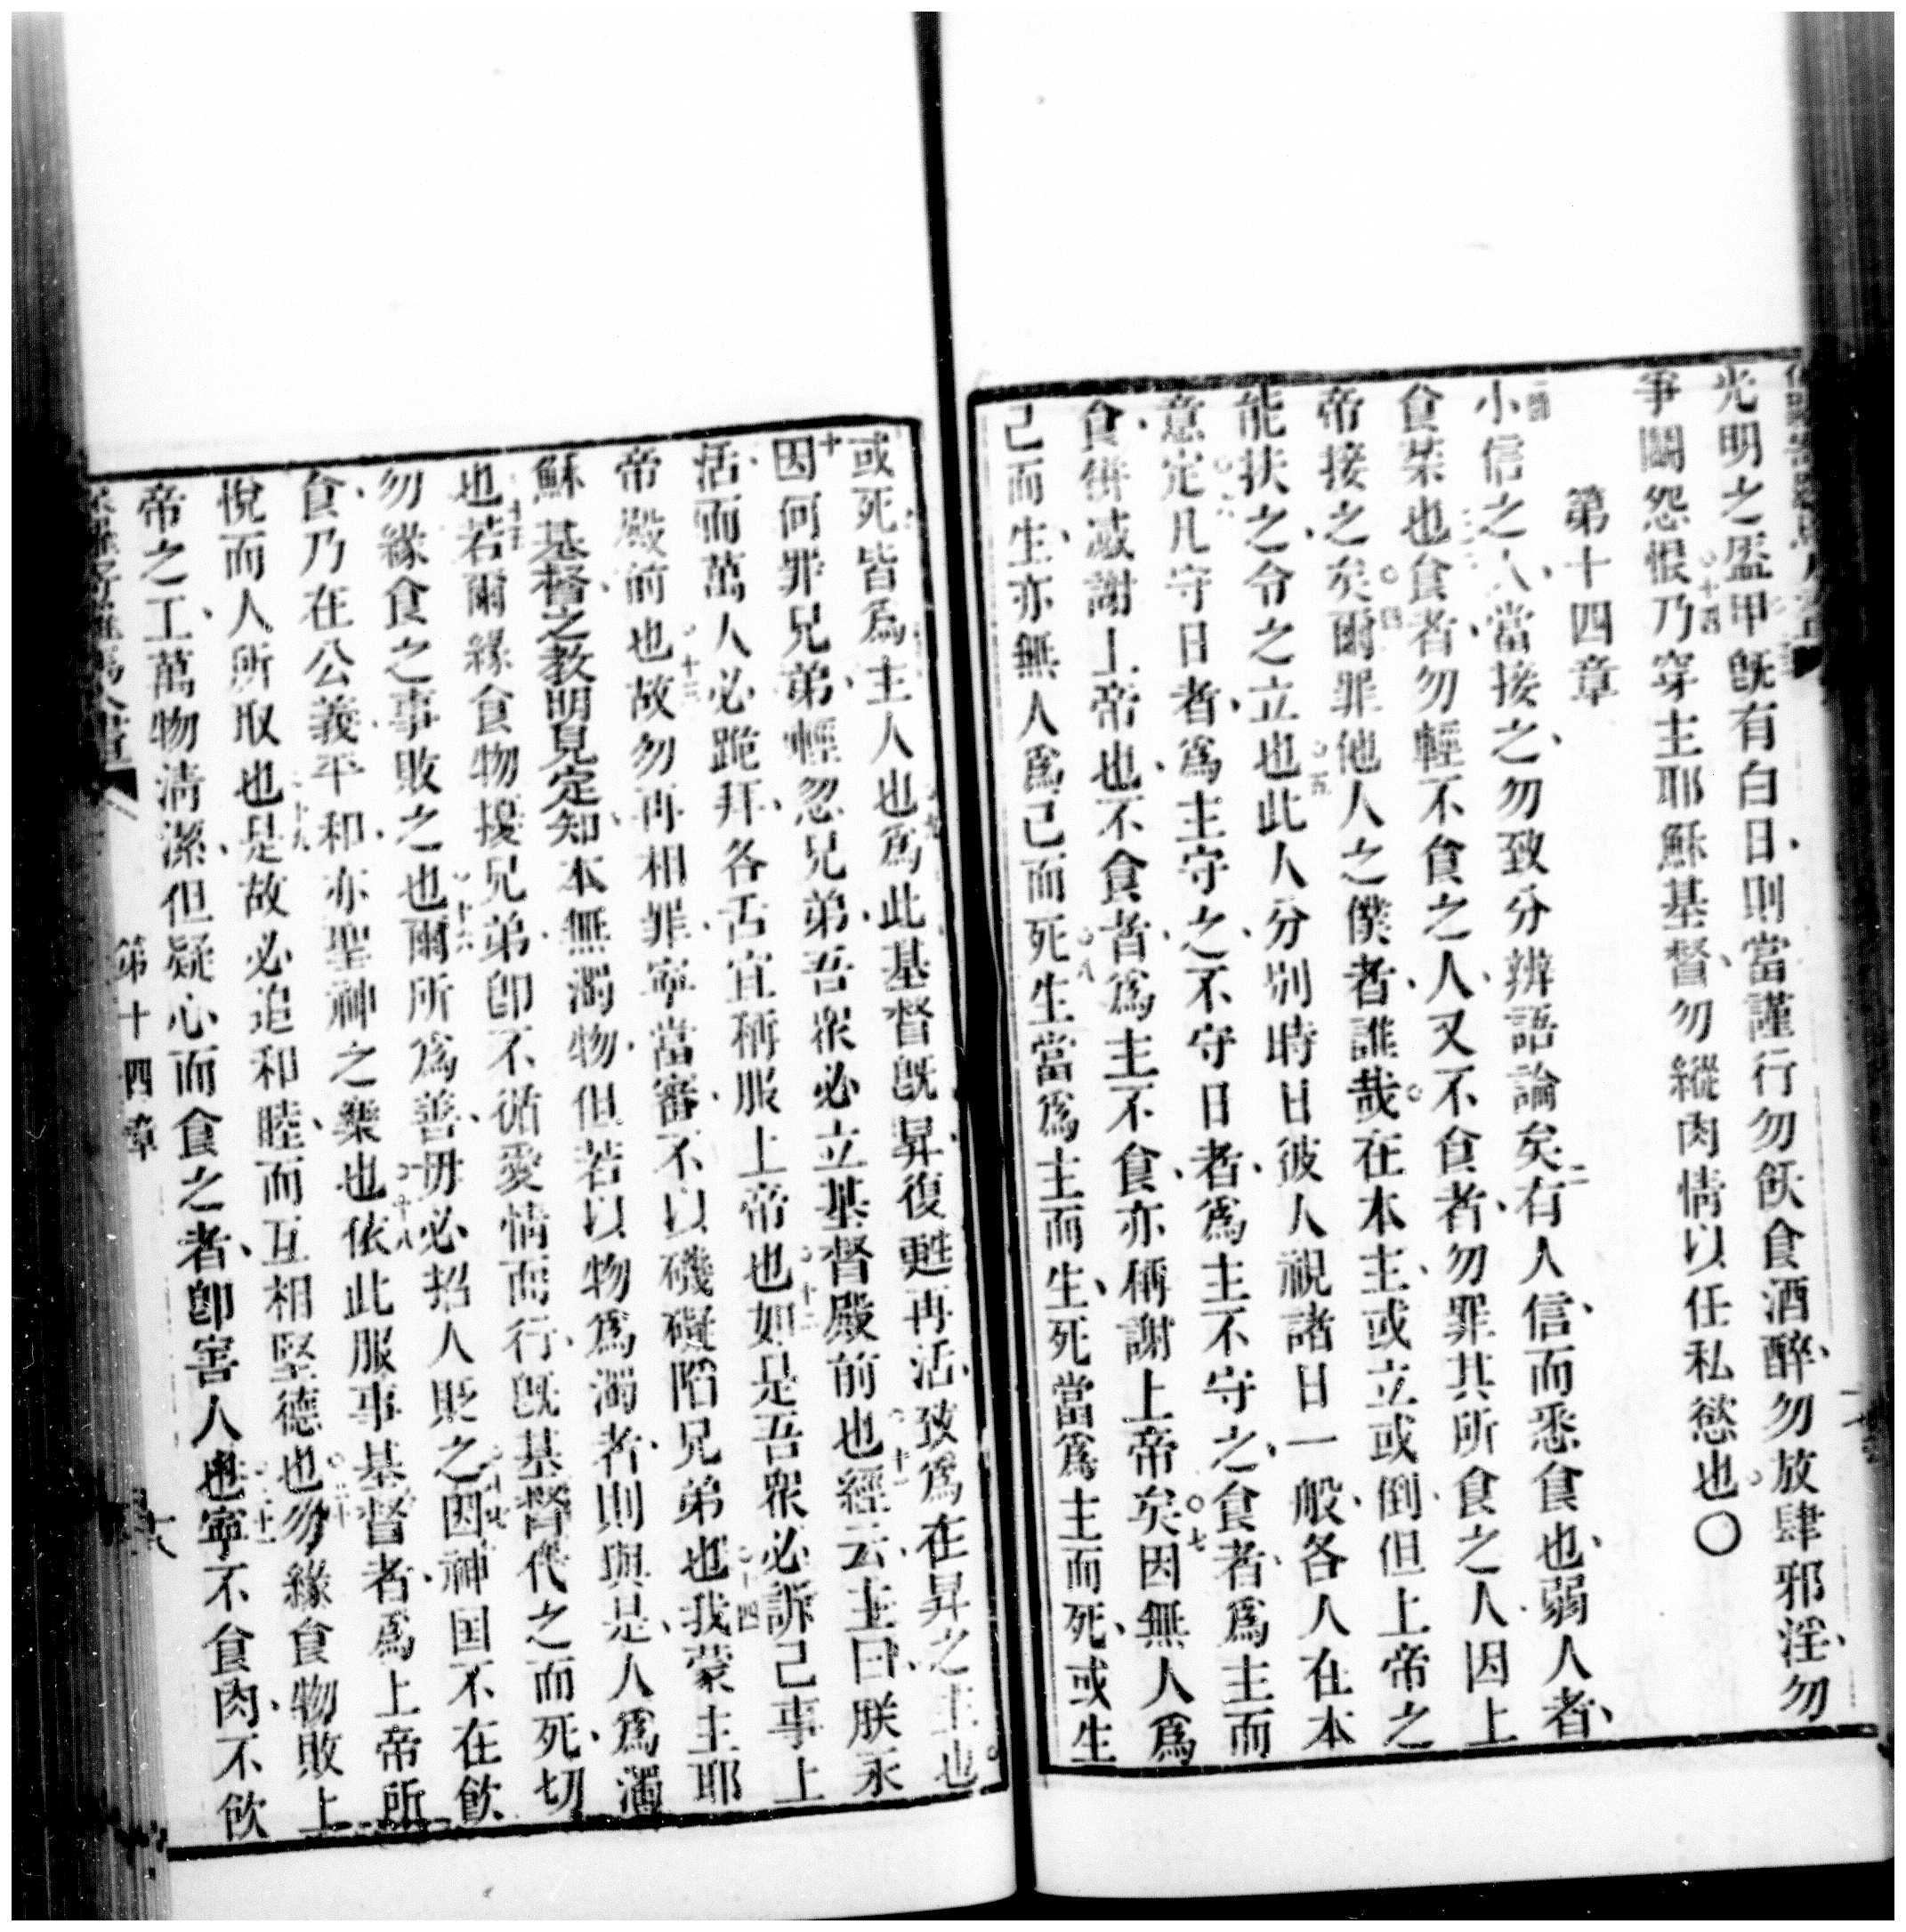 光明之盔甲旣有白日、則當謹行勿飲食酒醉、勿放肆邪淫、勿
爭鬬怨恨○十四乃穿主耶穌基督、勿縱肉情以任私慾也○
第十四章
小信之人、當接之、勿致分辨語論矣二有人信、而悉食也、弱人者、
食菜也三食者、勿輕不食之人、又不食者、勿罪其所食之人、因上
帝接之矣○四爾罪他人之僕者、誰哉、在本主、或立或倒、但上帝之
能扶之、令之立也○五此人分別時日、彼人視諸日一般、各人在本
意定○六凡守日者、爲主守之、不守日者、爲主不守之、食者、爲主而
食、併感謝上帝也、不食者、爲主不食、亦稱謝上帝矣○七因無人爲
己而生、亦無人爲己而死○八生當爲主而生、死當爲主而死、或生
或死、皆爲主人也○九爲此基督旣昇復甦再活、致爲在昇之主也。
十因何罪兄弟、輕忽兄弟、吾衆必立基督殿前也○十一經云、主曰、朕永
活、而萬人必跪拜、各舌宜稱服上帝也○十二如是吾衆必訴己事上
帝殿前也○十三故勿再相罪、寧當審、不以磯礙陷兄弟也○十四我蒙主耶
穌基督之教、明見定知、本無濁物、但若以物爲濁者、則與是人爲濁
也○十五若爾緣食物擾兄弟、卽不循愛情而行、旣基督代之而死、切
勿緣食之事敗之也○十六爾所爲善、毋必招人貶之○十七因神国不在飲
食、乃在公義平和、亦聖神之樂也○十八依此服事基督者、爲上帝所
悅、而人所取也○十九是故必追和睦、而互相堅德也○二十勿緣食物敗上
帝之工、萬物淸潔、但疑心而食之者、卽害人也○二十一寧不食肉、不飲
第十四章
十八